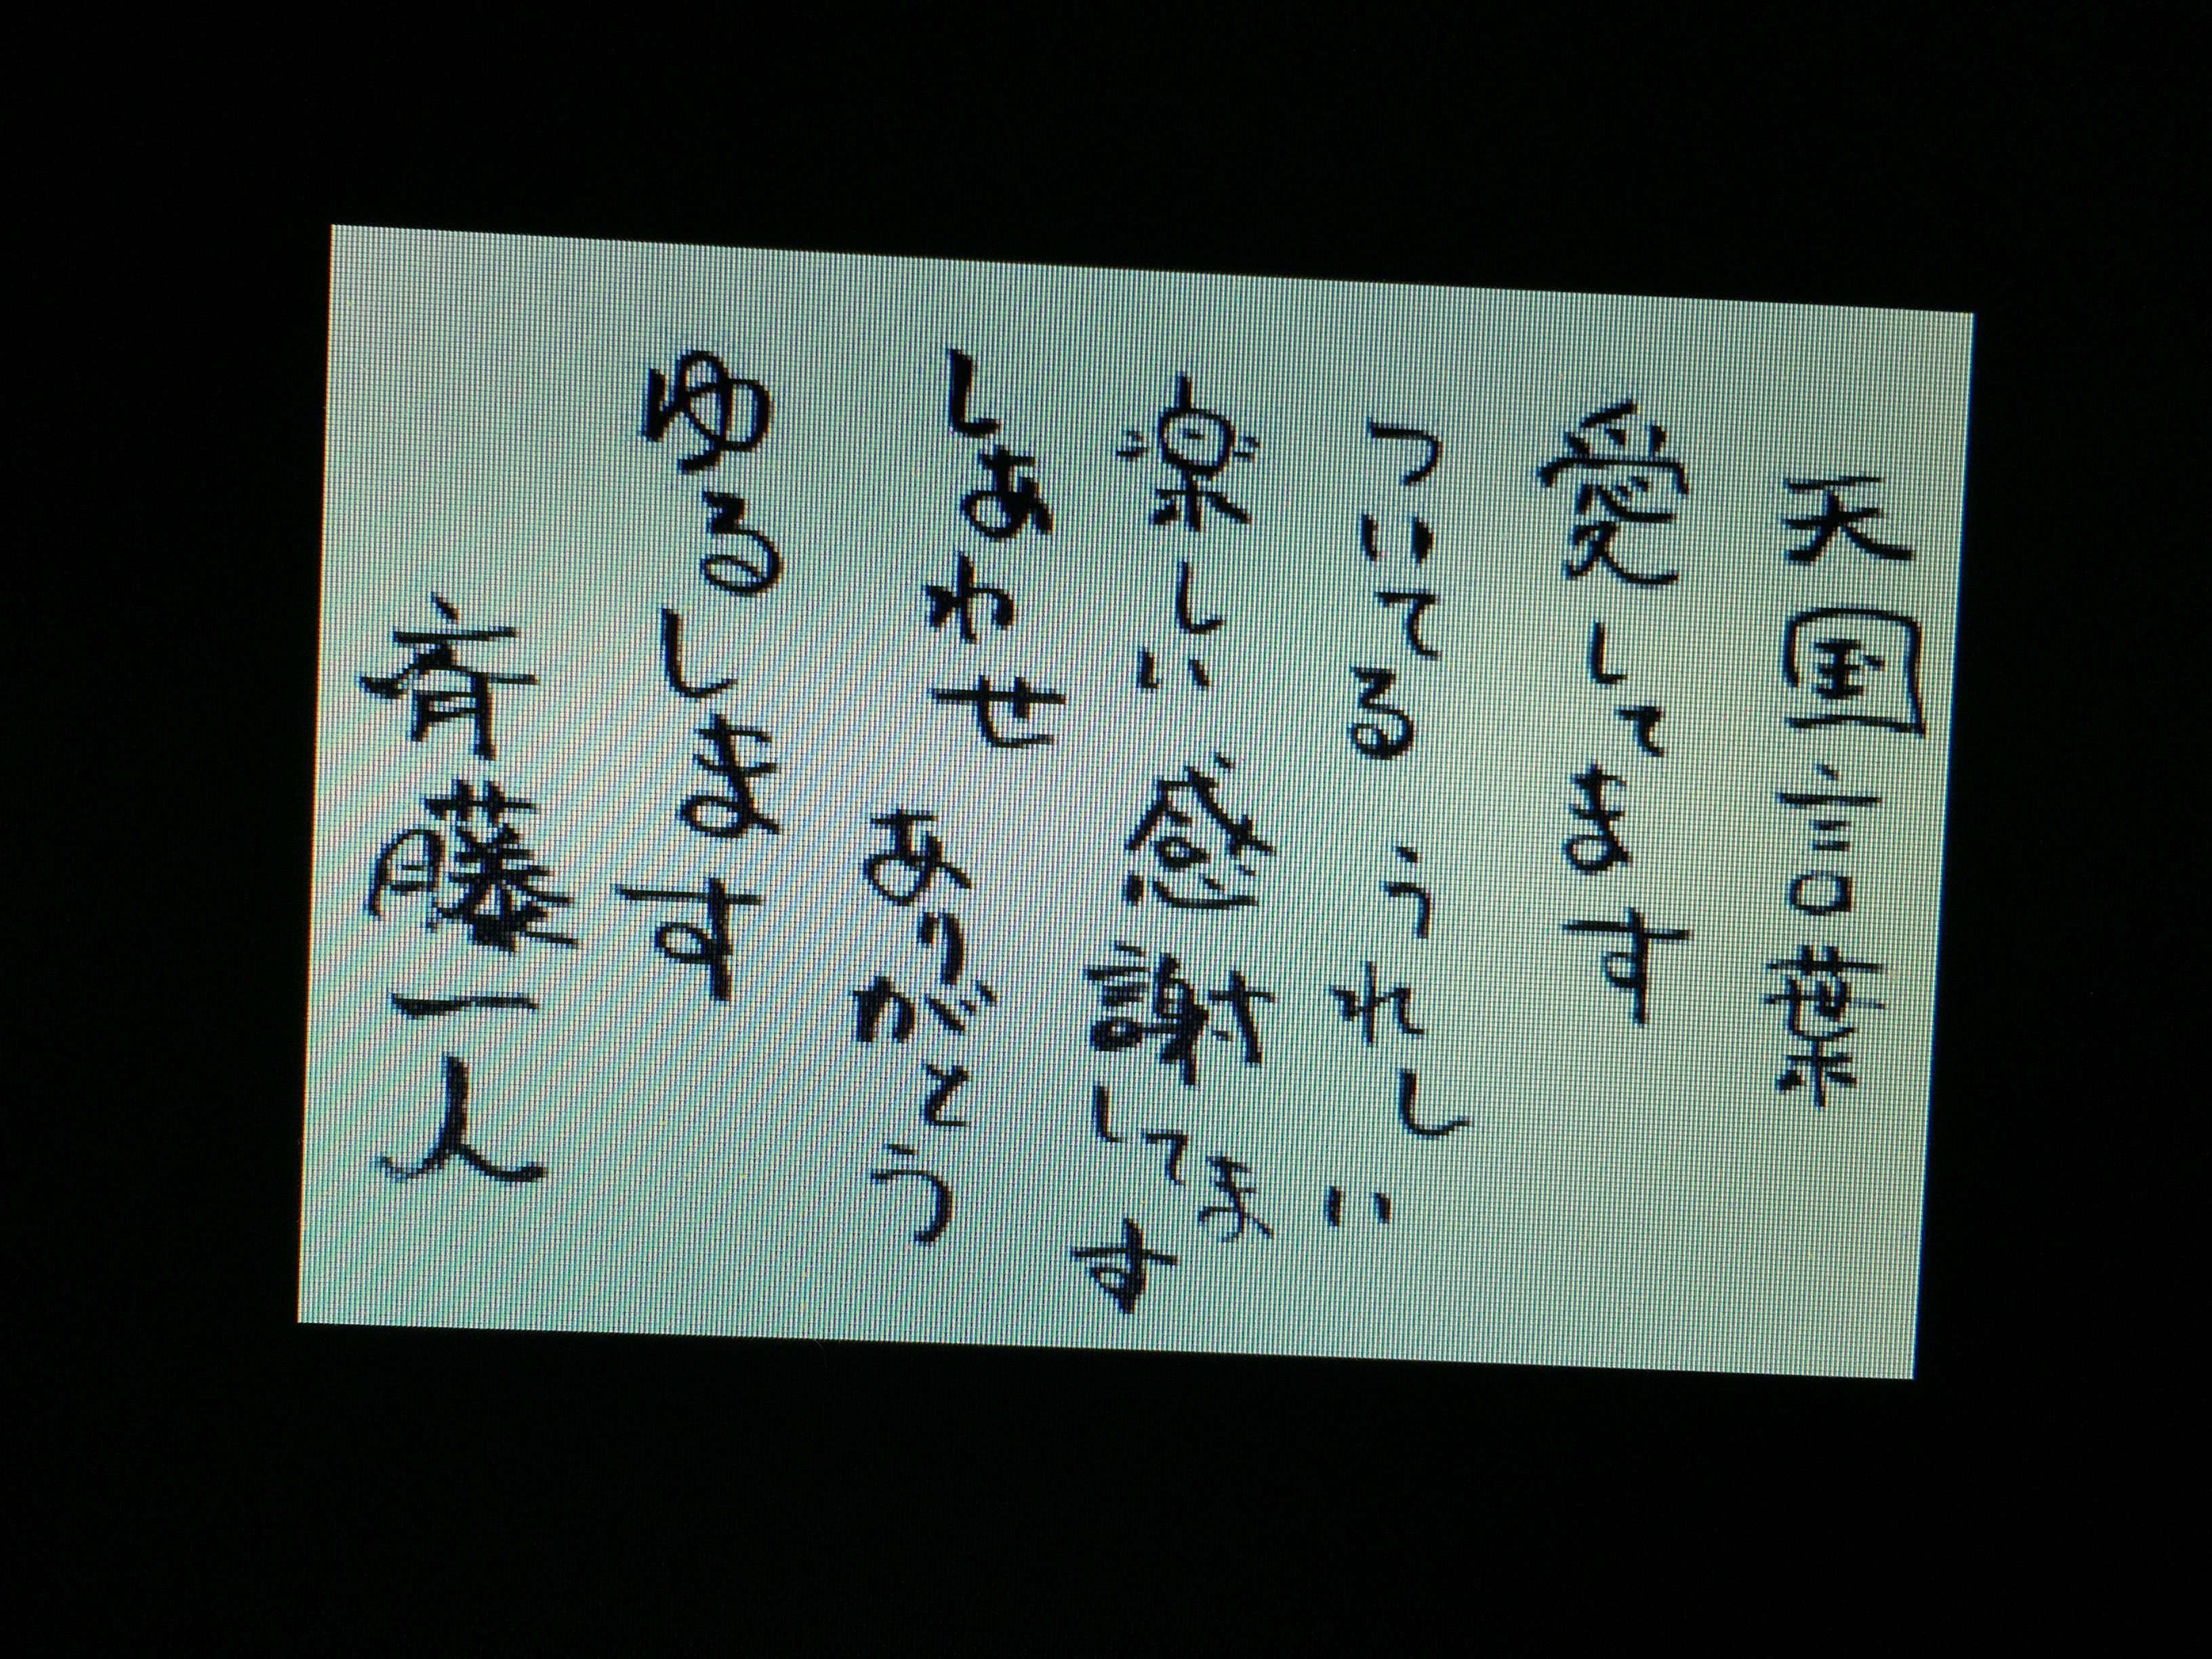 天国言葉
愛してます
ついてる うれしい
楽しい 感謝してます
しあわせ ありがとう
ゆるします
斉藤一人